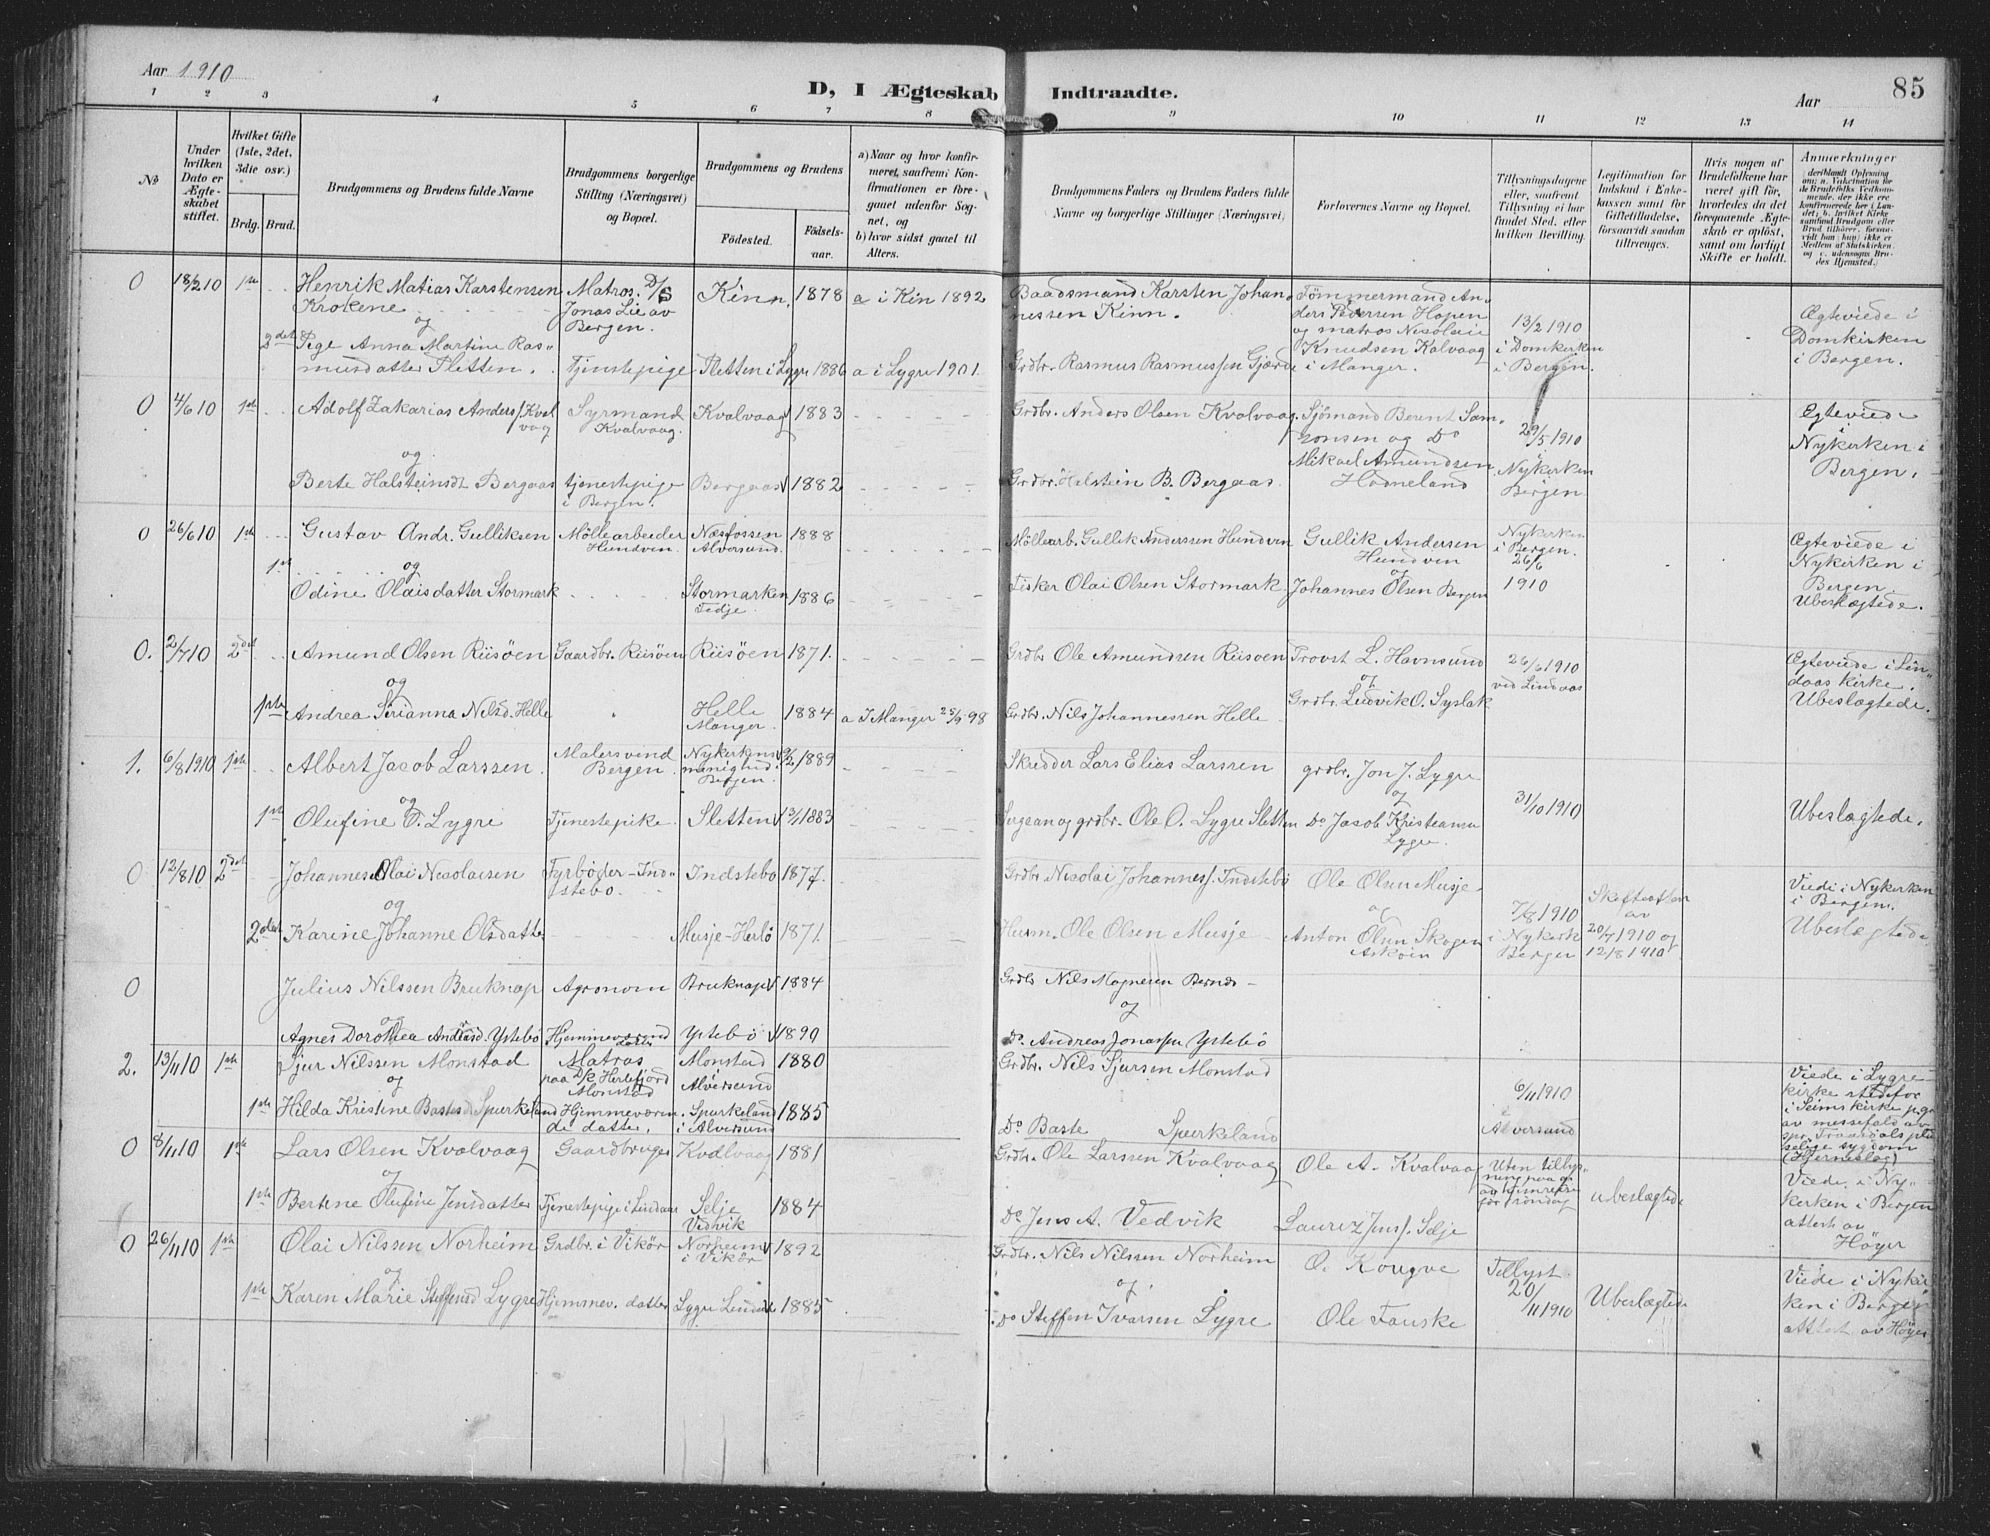 Aar 1910
D, I Ægteskab Indtraadte.
Aar
85
1 2 3 4 5 6 7 8 9 10 11 12 13 14
No
Under hvilken Dato er Ægteskabet stiftet.
Hvilket Gifte (1ste, 2det, 3die osv.)
Brdg. Brud.
Brudgommens og Brudens fulde Navne
Brudgommens borgerlige Stilling (Næringsvei) og Bopæl.
Brudgommens og Brudens
Fødested.
Fødselsaar.
a) Naar og hvor konfirmeret, saafremt Konfirmationen er foregaaet udenfor Sognet, og
b) hvor sidst gaaet til Alters.
Brudgommens Faders og Brudens Faders fulde Navne og borgerlige Stillinger (Næringsvei)
Forlovernes Navne og Bopæl.
Tillysningsdagene eller, saafremt Tillysning ei har fundet Sted, efter hvilken Bevilling.
Legitimation for Indskud i Enkekassen samt for Giftetilladelse, forsaavidt saadan tiltrænges.
Hvis nogen af Brudefolkene har været gift før, hvorledes da det foregaaende Ægteskab er opløst, samt om lovligt Skifte er holdt.
Anmærkninger
deriblandt Oplysning om: a. Vakcination for de Brudefolks Vedkommende, der ikke ere konfirmerede her i Landet; b. hvilket Kirkesamfund Brudgom eller Brud tilhører, forsaavidt han (hun) ikke er Medlem af Statskirken, og c. udensogns Brudes Hjemsted.)
0 18/2 10 1ste Henrik Matias Karstensen Krokene Matros D/S Jonas Lie av Bergen. Kinn, 1878 a i Kin 1892 Baadsmand Karsten Johannessen Kinn. Tømmermand Anders Pedersen Hopen og matros Nicolai Knudsen Kalvaag i Manger. 13/2 1910 i Domkirken i Bergen. Ægteviede i Domkirken i Bergen.
og
2det Pige Anna Martine Rasmusdatter Fletten. Tjenstepige Fletten i Lygre 1886 a i Lygre 1901. Grdbr. Rasmus Rasmussen Gjærde
0 4/6 10 1ste Adolf Zakarias Anders/ Kvalvaag Syrmand Kvalvaag. Kvalvaag 1883 Grdbr. Anders Olsen Kvalvaag. Sjömand Berent Samzonsen og Do Mikael Amundsen Hodneland 29/5 1910 i Nykirken Bergen Ægteviede i Nykirken i Bergen.
og
Berte Halsteinsdt Bergaas tjenestepige i Bergen. Bergaas 1882 Grdbr. Halstein B. Bergaas.
0 26/6 10 1ste Gustav Andr. Gulliksen Möllearbeider Hundven. Næsfossen Alversund. 1888 Möllearb. Gullik Anderssen Hundven Gullik Andersen Hundven og Johannes Olsen Bergen Nykirken i Bergen. 26/6 1910 Ægteviede i Nykirken i Bergen Ubeslægtede.
1ste og
Odine Olaisdatter Stormark Stormarken Fedje. 1886 Fisker Olai Olsen Stormark
0. 2/7 10 2det Amund Olsen Riisöen Gaardbr. Riisöen Riisöen 1871. Grdbr Ole Amundsen Riisoen Provst L. Havnsund og Grdbr. Ludvik O. Syslak 26/6 1910 ved Lindaas Ægteviede i Lindaas kirke. Ubeslægtede.
og
1ste Andrea Serianna Nelsd. Helle Helle Manger. 1884 a I Manger 25/9 98 Grdbr. Nils Johannessen Helle
1. 6/8 1910 1ste Albert Jacob Larssen. Malersvend Bergen. Nykerkens menighed. Bergen. 9/2 1889 Skredder Lars Elias Larssen grdbr. Jon J. Lygre og Do Jacob Kristiansen Lygre. 31/10 1910 Ubeslægtede.
og
1ste Olufine O. Lygre Tjenestepike. Sletten 13/1 1883 Sersean og grdbr. Ole O. Lygre Sletten
0 12/8 10 2det Johannes Olai Nicolaisen Fyrbøder-Indstebo. Indstebo 1877. Grdbr Nicolai Johannes/. Indstebö Ole Olsen Musje og Anton Olsen Skogen Askoien 7/8 1910 i Nykerk Bergen Skifteattest av 20/7 1910 og 12/8 1910 Viede i Nykerken i Bergen. Ubeslægtede
og
2det Karine Johanne Olsdatter Musje-Herlö 1871. Husm. Ole Olsen Musje
0 Julius Nilssen Bruknap Agronom Bruknap 1884 Grdbr Nils Mognesen Bernds
og og
Agnes Dorothea Andreasd. Ystebö Hjemmeværend datter Ystebö 1890 Do. Andreas Jonassen Ystebö
2. 13/11 10 1ste Sjur Nilssen Monstad Matros paa D/K Herlefjord Monstad Monstad i Alversund 1880 Grdbr. Nils Sjursen Monstad 6/11 1910 i Alversund Viede i Lygre kirke stedefor i Seims kirke pga av messefald av spr. Traasdals plutselige sygdom (Hjerneslag)
og
1ste Hilda Kristine Bastesd Spurkeland Hjemmeværende datter. Spurkeland i Alversund 1885 Do Baste Spurkeland
0 8/11 10 1ste Lars Olsen Kvalvaag Gaardbruger Kvalvaag 1881 Grdbr. Ole Larssen Kvalvaag Ole A. Kvalvaag Uten tillysning paa g. ubeslægtede Viede i Nykerken i Bergen attest av Höyer
og
1ste Bertine Olufine Jensdatter Tjenestepige i Lindaas Selje Vedvik 1884 Do Jens A. Vedvik Lauriz Jens/. Selje
0 26/11 10 1ste Olai Nilssen Norheim Grdbr. i Vikör Norheim i Vikör 1892 Grdbr. Nils Nilssen Norheim O. Kougve Tillyst 20/11 1910 Ubeslægtede Viede i Nykirken i Bergen attest av Höyer
og og
1ste Karen Marie Steffensd Lygre Hjemmev. datter Lygre Lindaas 1885 Do Steffen Ivarsen Lygre Ole Fauske